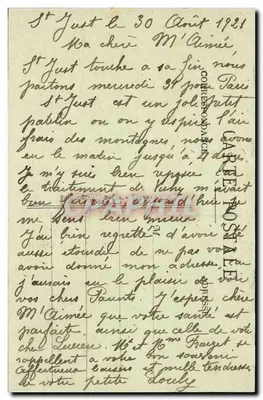 St Just le 30 Août 1921
Ma chère M'Aimée,
St Just touche à sa fin, nous
partons mercredi 31 pour Paris
St Just est un joli petit
patelin ou on y respire l'air
frais des montagnes, nous avons
eu le matin jusqu'à
Je m'y suis bien reposée
le traitement de Vichy m'avait
bien fatiguée
me sens bien mieux
J'ai bien regretté d'avoir été
aussi étourdie de ne pas vous
avoir donné mon adresse car
j'aurais eu le plaisir de voir
vos chers Parents. J'espère chère
M'Aimée que votre santé est
parfaite ainsi que celle de votre
cher Lucien. Mr et Mme se
rappellent à votre bon souvenir
Affectueux baisers et mille tendresses
de votre petite
CARTE POSTALE
CORRESPONDANCE
ADRESSE